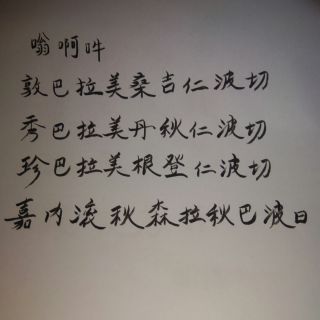 嗡啊吽
敦巴拉美桑吉仁波切
秀巴拉美丹秋仁波切
珍巴拉美根登仁波切
嘉内滚秋森拉秋巴波日